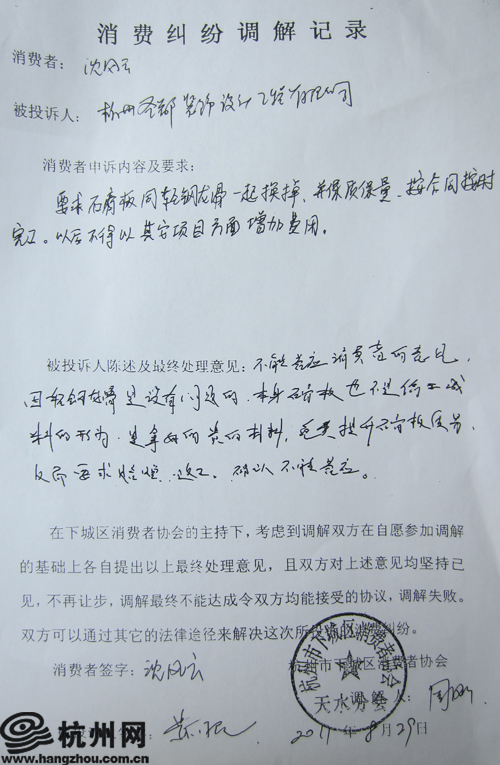 消费纠纷调解记录
消费者：沈风云
被投诉人：杭州圣都装饰设计工程有限公司
消费者申诉内容及要求：
要求石膏板同轻钢龙骨一起换掉、并保质保量、按合同按时
完工。以后不得以其它项目方面增加费用。
被投诉人陈述及最终处理意见：不能答应消费者的意见，
因轻钢龙骨是没有问题的。本身石膏板也不是偷工减
料的形为，是拿好的贵的材料，免费提升石膏板
反而要求赔偿，返工。确认不能答应。
在下城区消费者协会的主持下，考虑到调解双方在自愿参加调解
的基础上各自提出以上最终处理意见，且双方对上述意见均坚持己
见，不再让步，调解最终不能达成令双方均能接受的协议，调解失败。
双方可以通过其它的法律途径来解决这次所投诉的消费纠纷。
消费者签字：沈风云 杭州市下城区消费者协会
杭州市下城区消费者协会
天水分会
调解人：
2011年8月29日
杭州网
www.hangzhou.com.cn